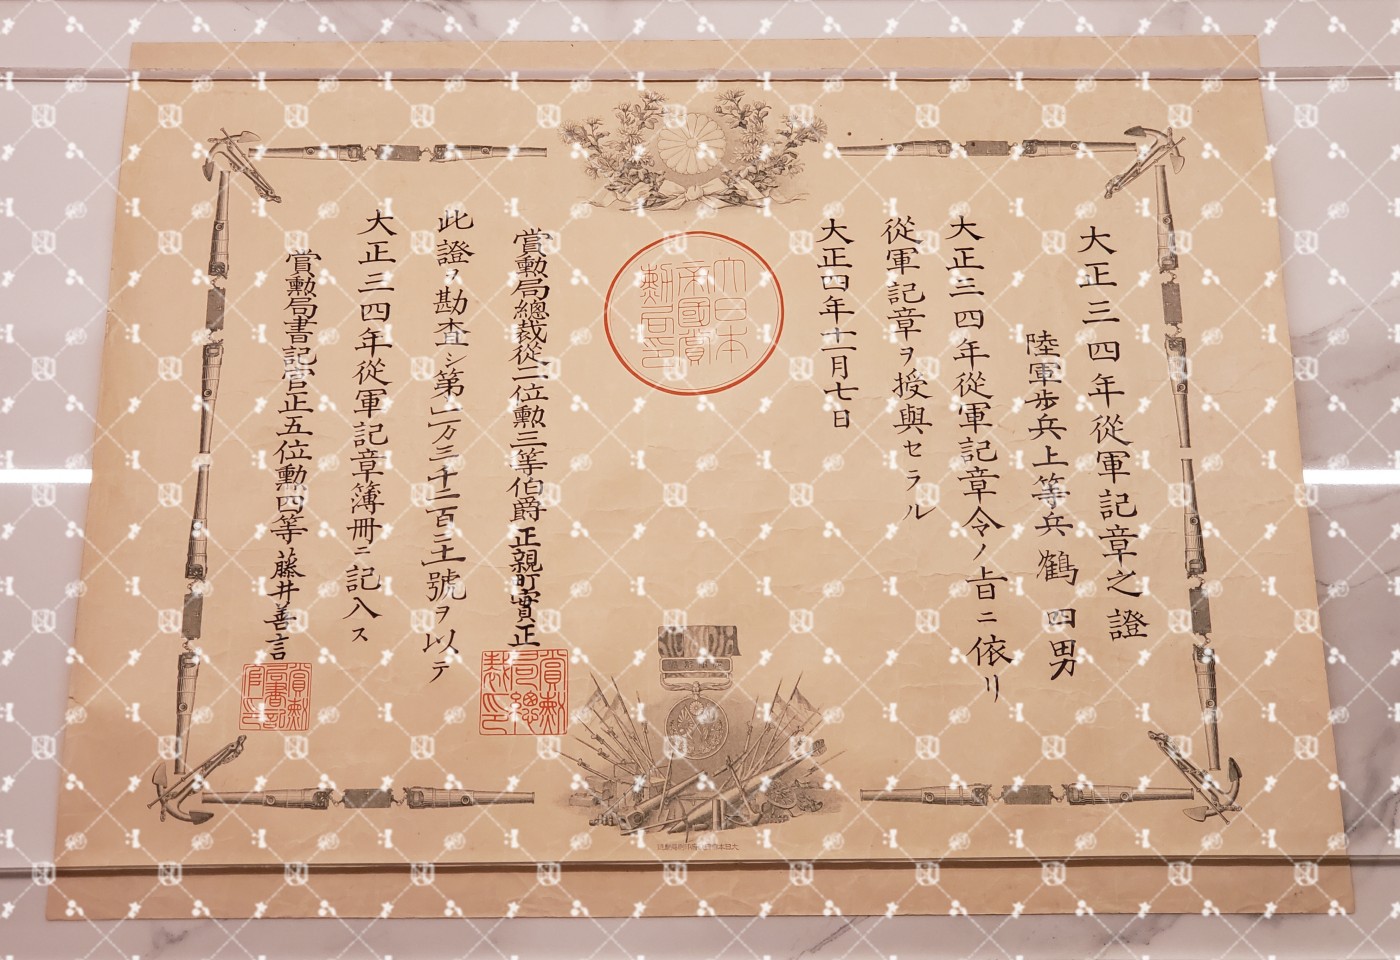 大正三四年從軍記章之證
陸軍歩兵上等兵 鶴 四男
大正三四年從軍記章令ノ旨ニ依リ
從軍記章ヲ授與セラル
大正四年十一月七日
大日本
帝國賞
勲局印
賞勲局總裁從二位勲三等伯爵 正親町實正
賞勲
局總
裁印
此證ヲ勘査シ第
號ヲ以テ
大正三四年從軍記章簿冊ニ記入ス
賞勲局書記官正五位勲四等 藤井善言
賞勲
局書記
官印